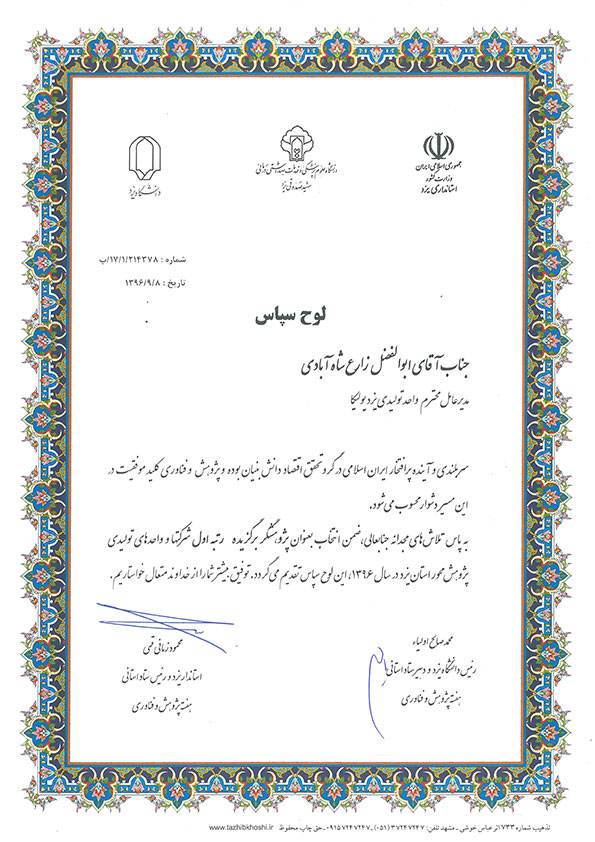 جمهوری اسلامی ایران
وزارت کشور
استانداری یزد
دانشگاه علوم پزشکی و خدمات بهداشتی درمانی
شهید صدوقی یزد
دانشگاه یزد
شماره : ۱۷/۱/۲۱۴۳۷۸/پ
تاریخ : ۱۳۹۶/۹/۸
لوح سپاس
جناب آقای ابوالفضل زارع شاه آبادی
مدیرعامل محترم واحد تولیدی یزد پولیکا
سربلندی و آینده پرافتخار ایران اسلامی در گرو تحقق اقتصاد دانش بنیان بوده و پژوهش و فناوری کلید موفقیت در
این مسیر دشوار محسوب می شود.
به پاس تلاش های مجدانه جنابعالی، ضمن انتخاب بعنوان پژوهشگر برگزیده رتبه اول شرکتها و واحدهای تولیدی
پژوهش محور استان یزد در سال ۱۳۹۶، این لوح سپاس تقدیم می گردد. توفیق بیشتر شما را از خداوند متعال خواستاریم.
محمد صالح اولیاء
رئیس دانشگاه یزد و دبیر ستاد استانی
هفته پژوهش و فناوری
محمود زمانی قمی
استاندار یزد و رئیس ستاد استانی
هفته پژوهش و فناوری
تذهیب شماره ۷۳۳ اثر عباس خوشی ـ مشهد تلفن: ۳۷۲۴۷۲۴۷ (۰۵۱) ـ ۰۹۱۵۷۲۴۷۲۴۷ ـ حق چاپ محفوظ www.tazhibkhoshi.ir